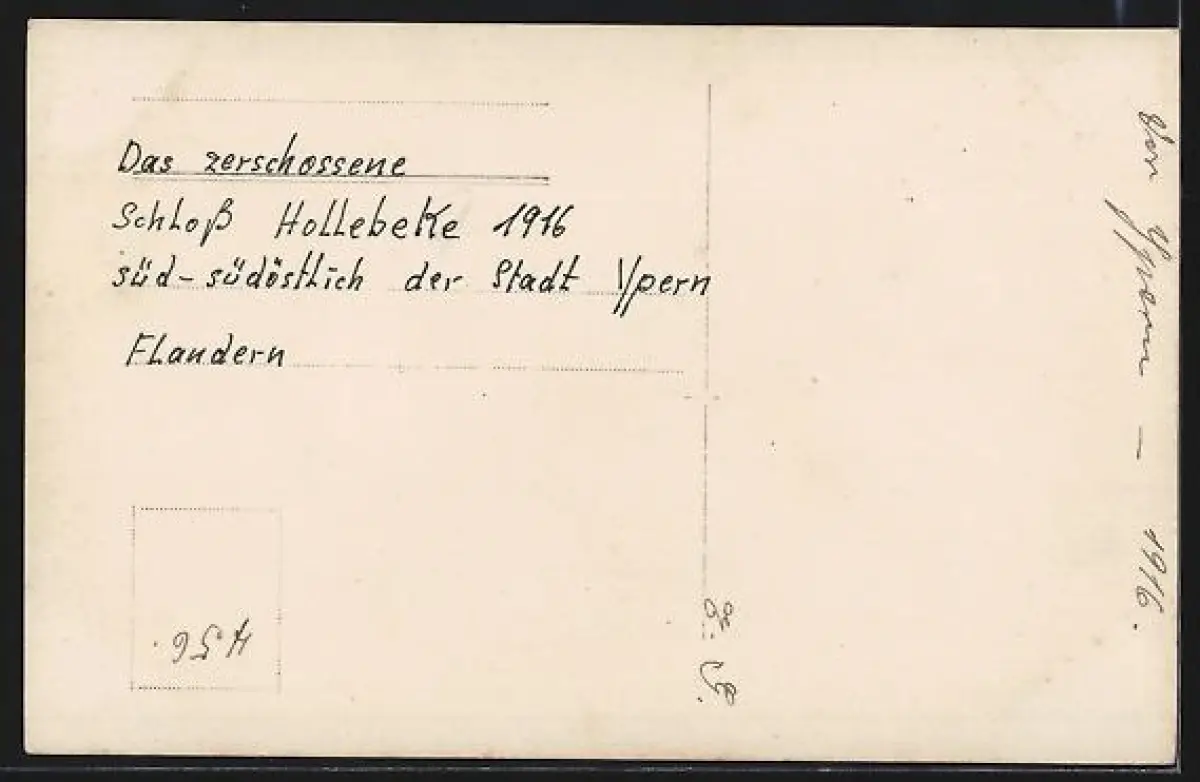 Das zerschossene
Schloß Hollebeke 1916
süd-südöstlich der Stadt Ypern
Flandern
Vor Ypern – 1916.
456.